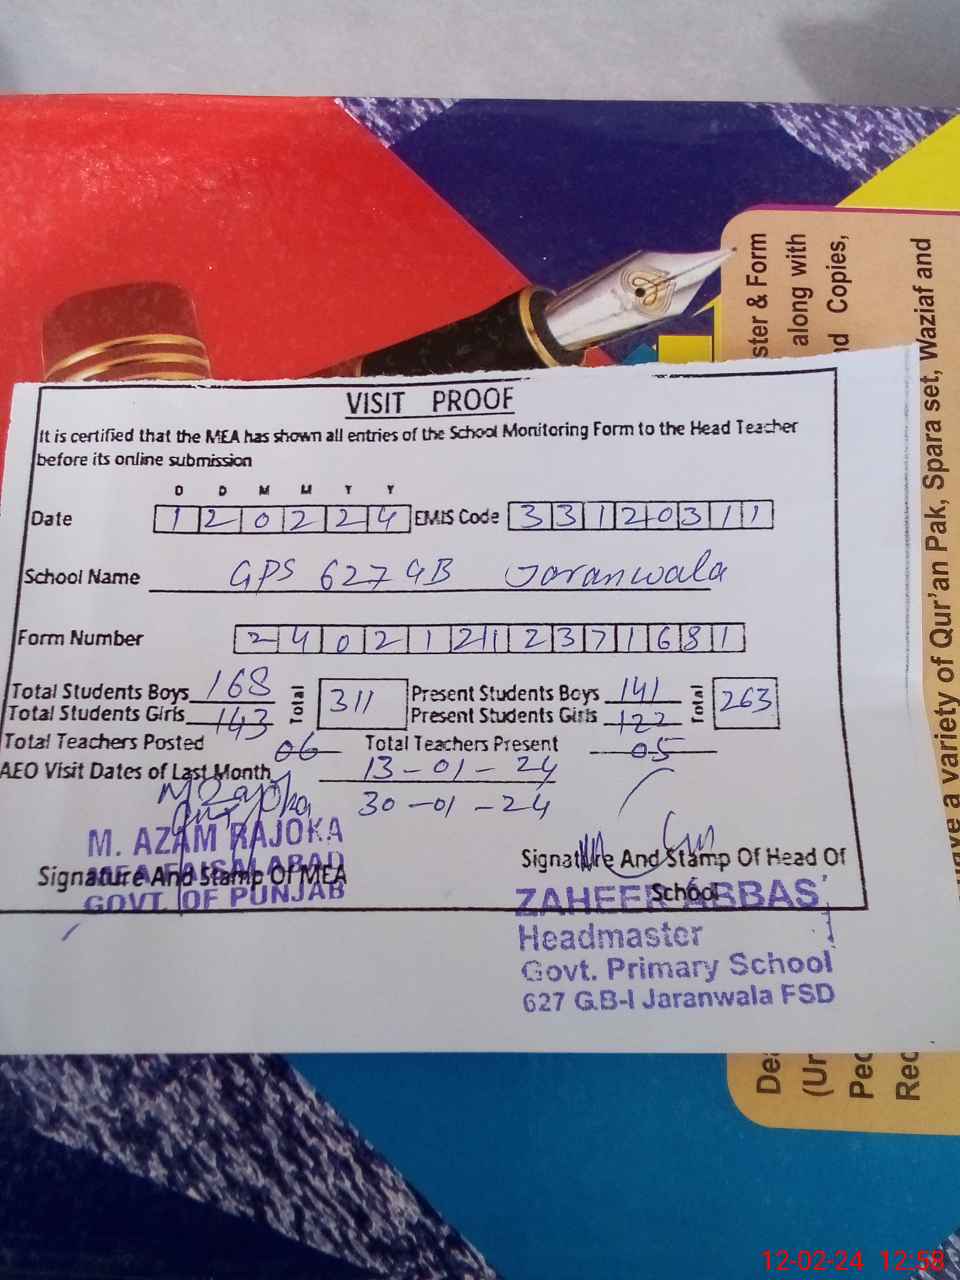 ster & Form
along with
Copies,
a variety of Qur'an Pak, Spara set, Waziaf and
VISIT PROOF
It is certified that the MEA has shown all entries of the School Monitoring Form to the Head Teacher
before its online submission
D D M M Y Y
Date 1 2 0 2 2 4 EMIS Code 3 3 1 2 0 3 1 1
School Name GPS 627 GB Jaranwala
Form Number 2 4 0 2 1 2 1 1 2 3 7 1 6 8 1
Total Students Boys 168 Total 311 Present Students Boys 141 Total 263
Total Students Girls 143 Present Students Girls 122
Total Teachers Posted 06 Total Teachers Present 05
AEO Visit Dates of Last Month 13-01-24
30-01-24
M. AZAM RAJOKA
MEA FAISALABAD
GOVT. OF PUNJAB
Signature And Stamp Of MEA
Signature And Stamp Of Head Of
School
ZAHEER ABBAS
Headmaster
Govt. Primary School
627 G.B-I Jaranwala FSD
12-02-24 12:58